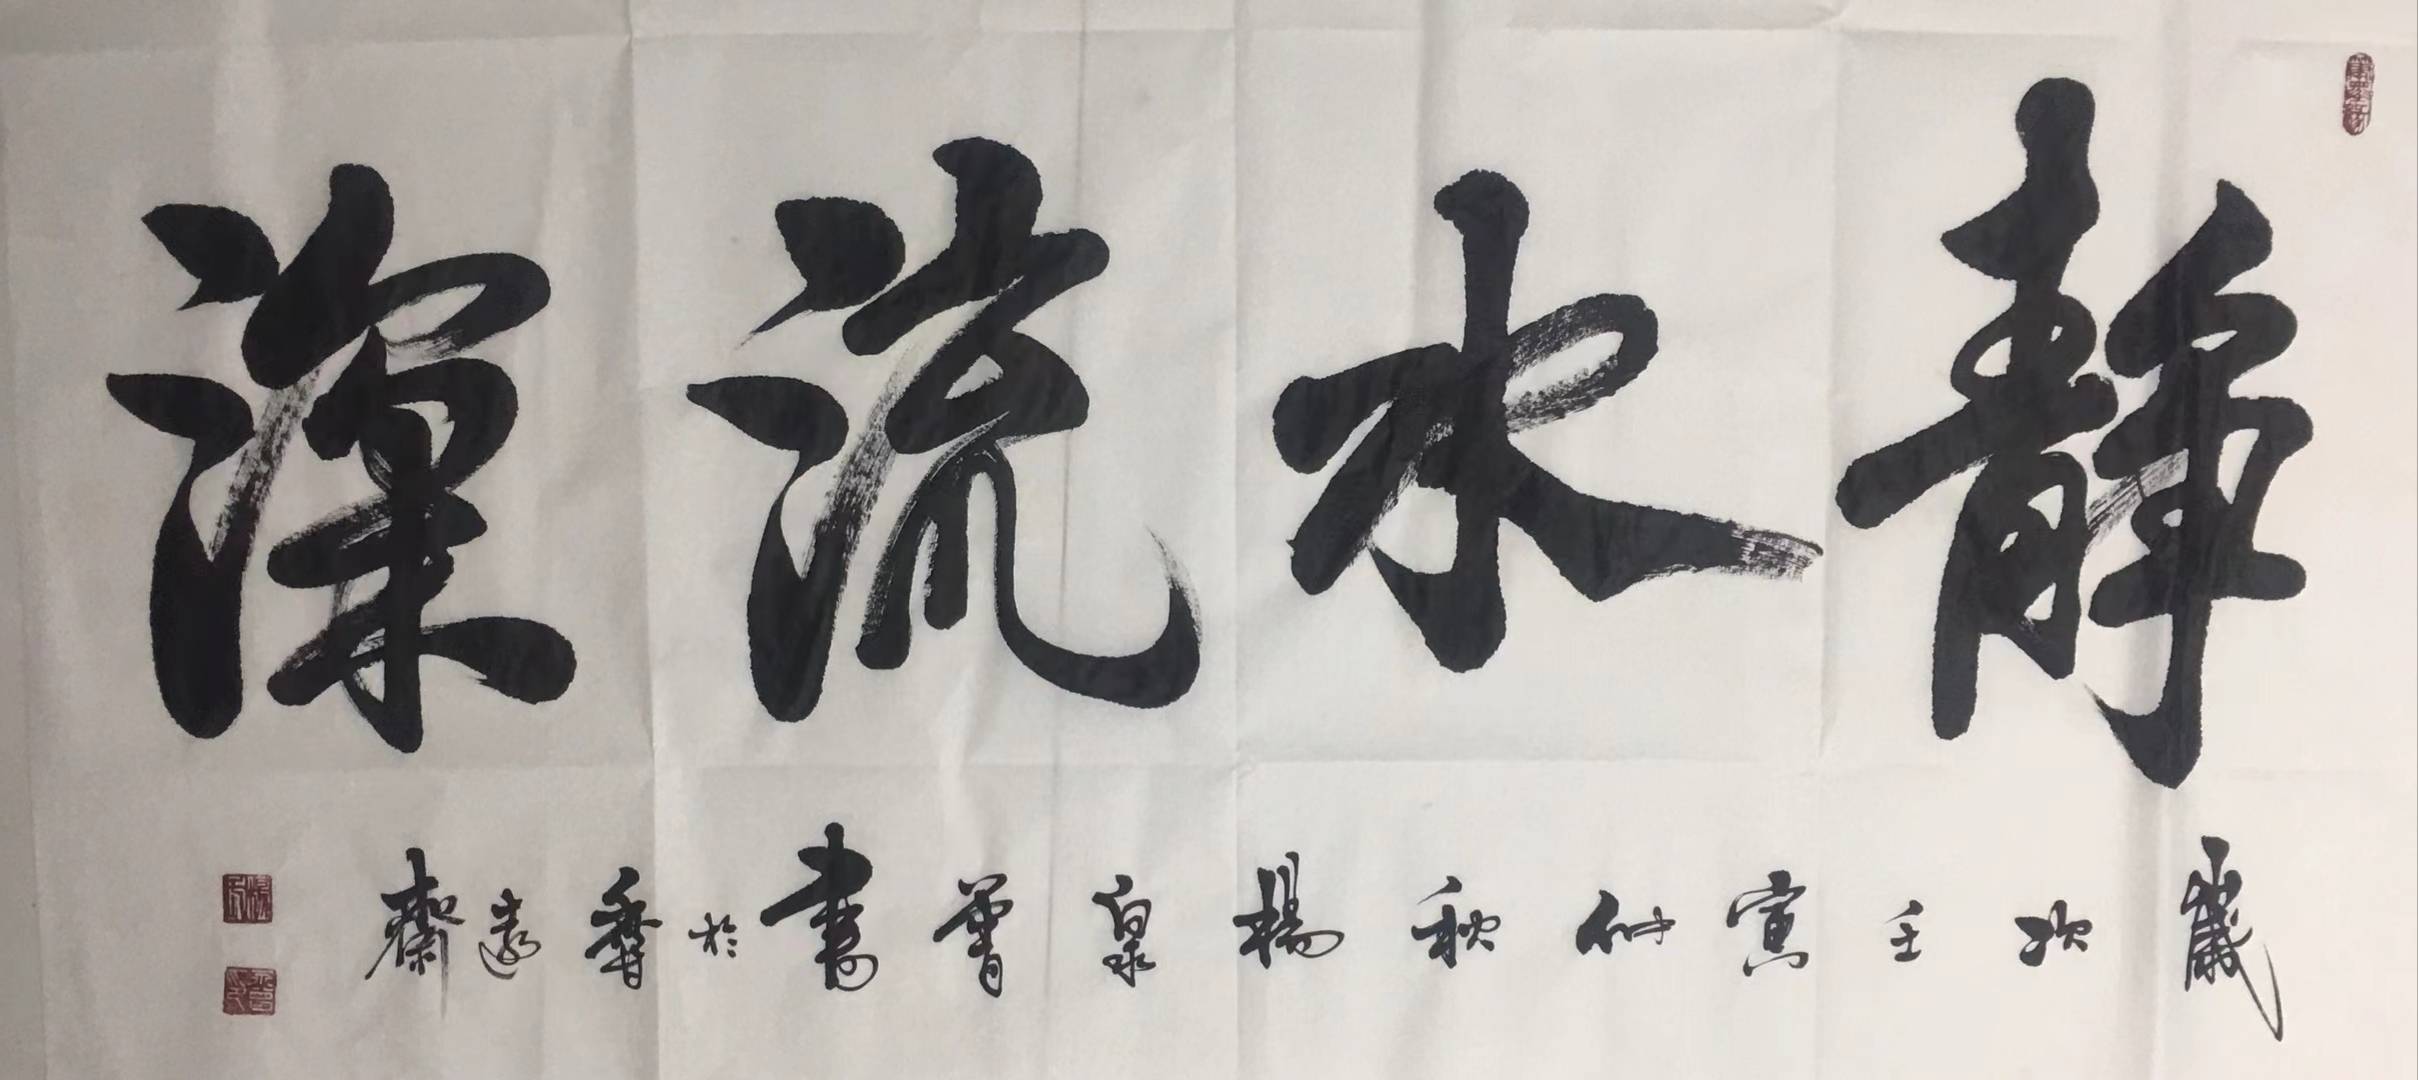 静水流深
歲次壬寅仲秋楊泉曾書於香遠齋